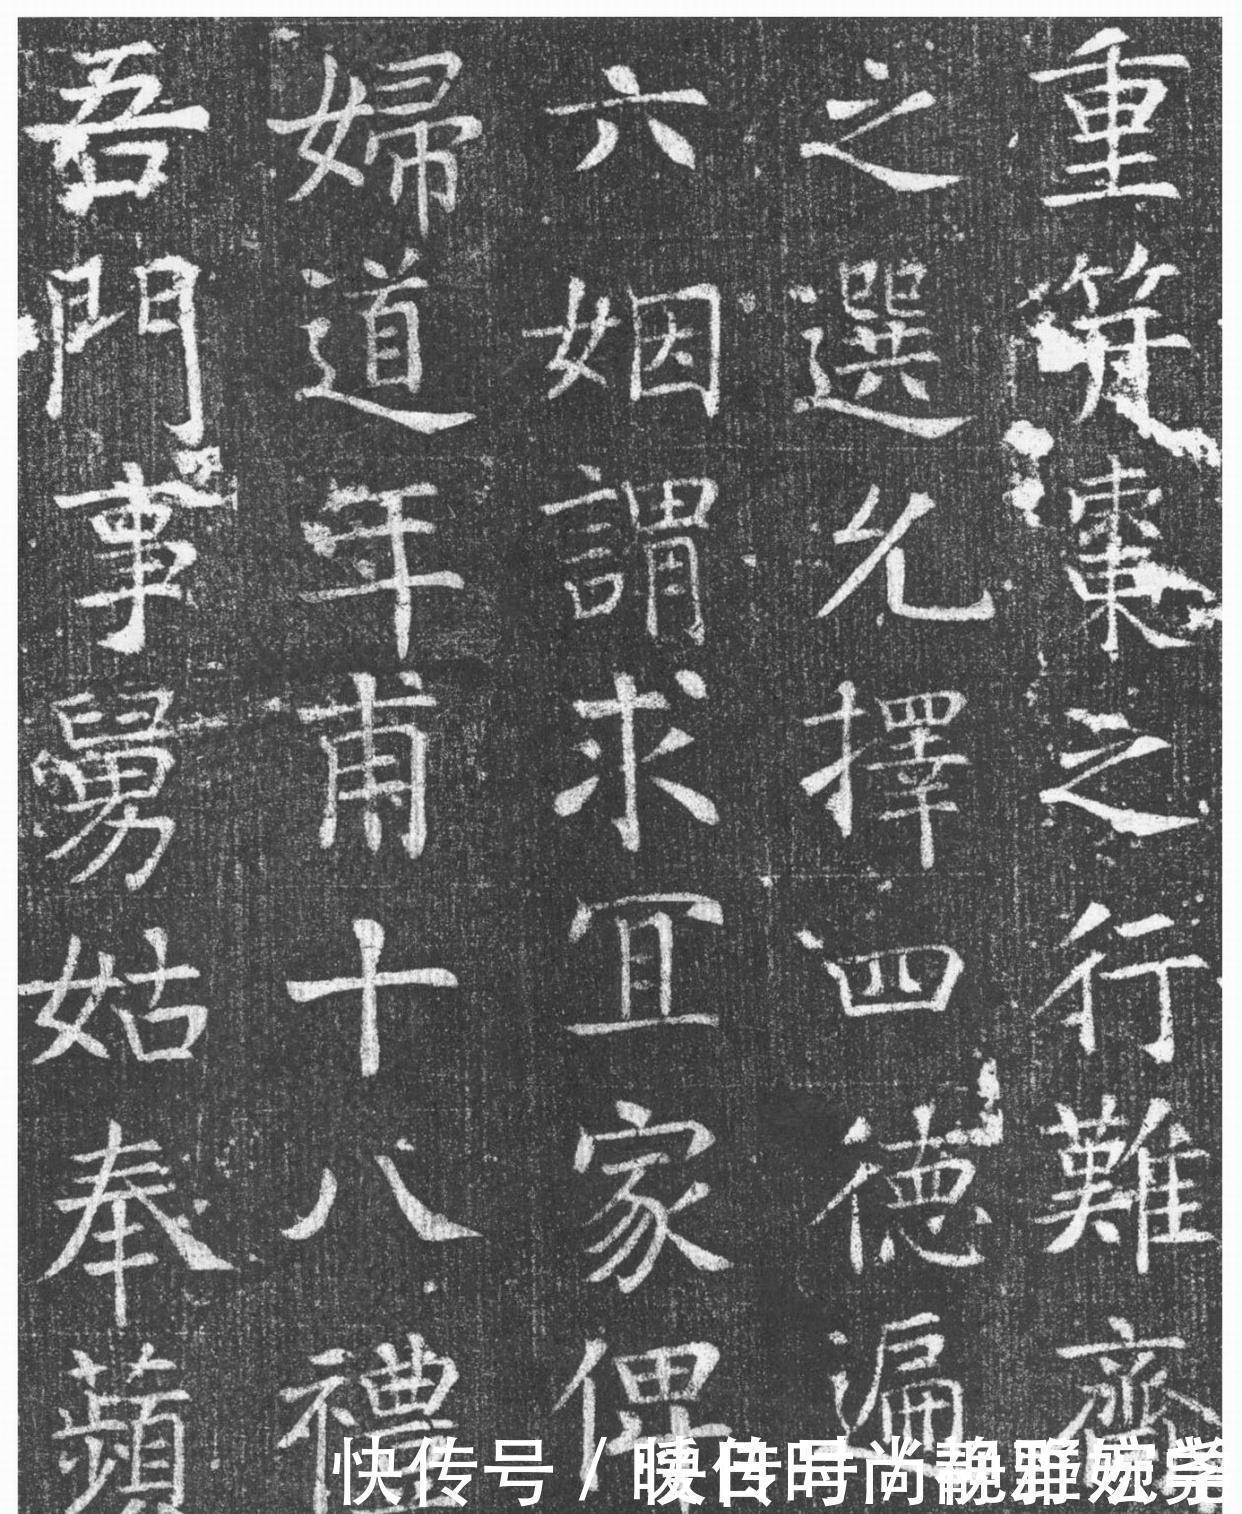 重棗之行難齊
之選允擇四德遍
六姻謂求冝家俾
婦道年甫十八禮
吾門事舅姑奉蘋
快传号 /